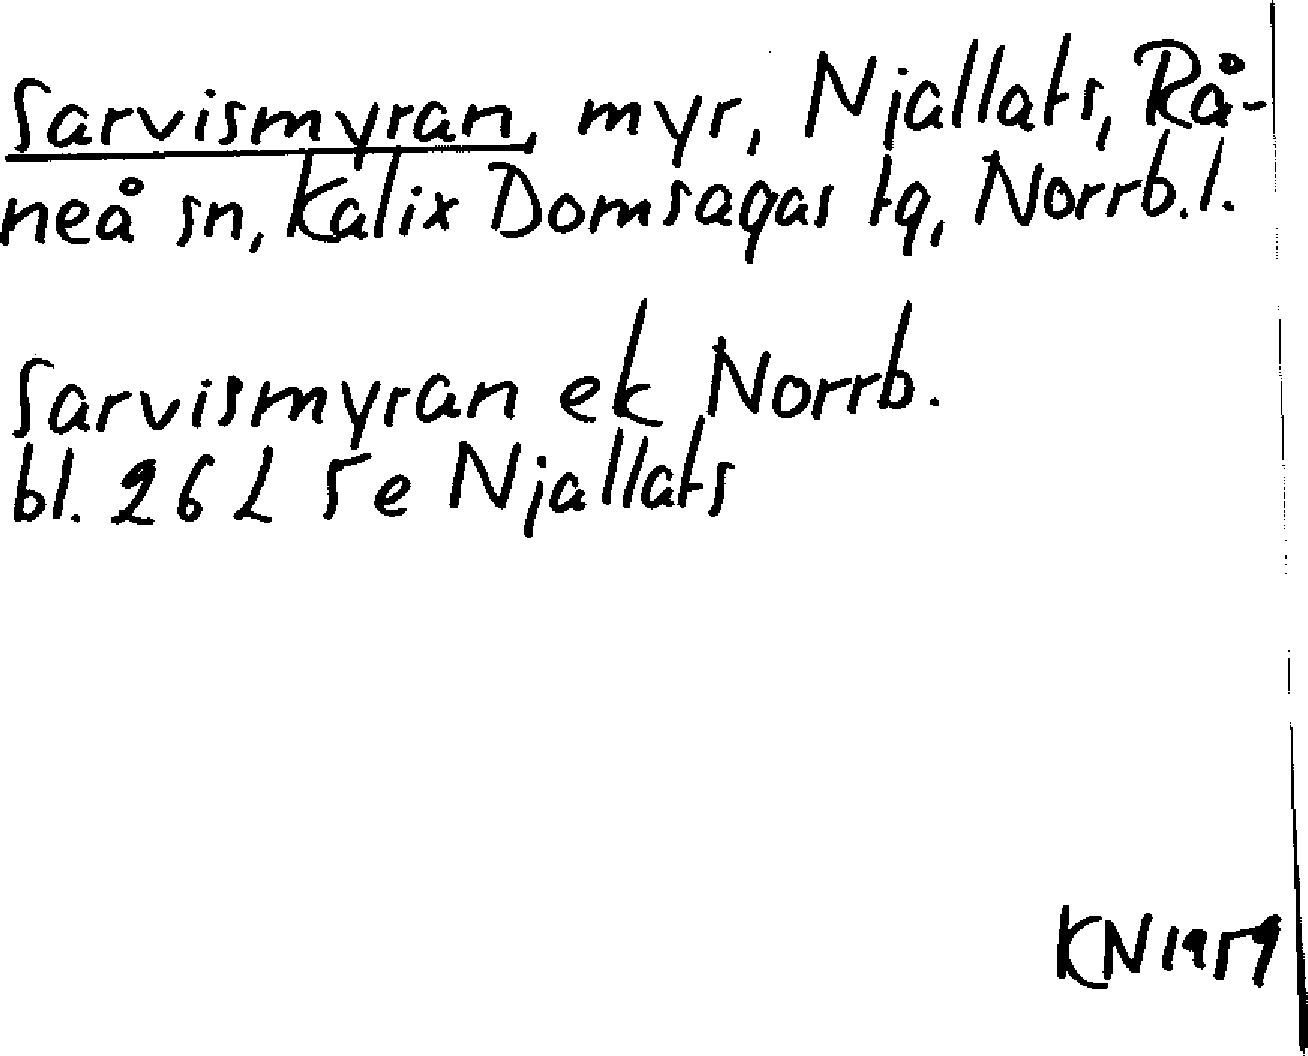 Sarvismyran, myr, Njallats, Rå-
neå sn, Kalix Domsagas tg, Norrb.l.
Sarvismyran ek Norrb.
bl. 26 L 5e Njallats
KN 1959